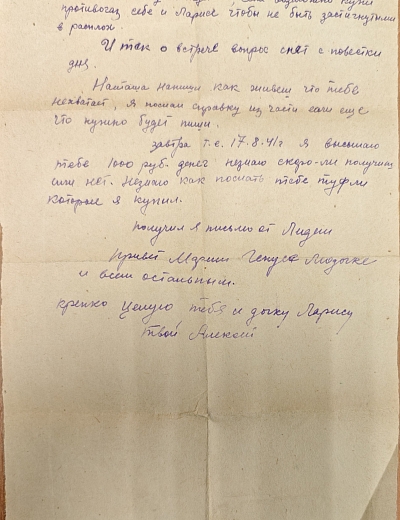 противогаз себе и Ларисе чтобы не быть застигнутыми
в расплох.
И так о встрече вопрос снят с повестки
дня.
Наташа напиши как живем что тебе
нехватает, я послал справку из части если еще
что нужно будет пиши.
завтра т.е. 17.8.41г я высылаю
тебе 1000 руб. денег незнаю скоро-ли получиш
или нет. Незнаю как послать тебе туфли
которые я купил.
получил я письмо от Лидии
привет Марии Генусе Людочке
и всем остальным.
крепко целую тебя и дочку Ларису
твой Алексей